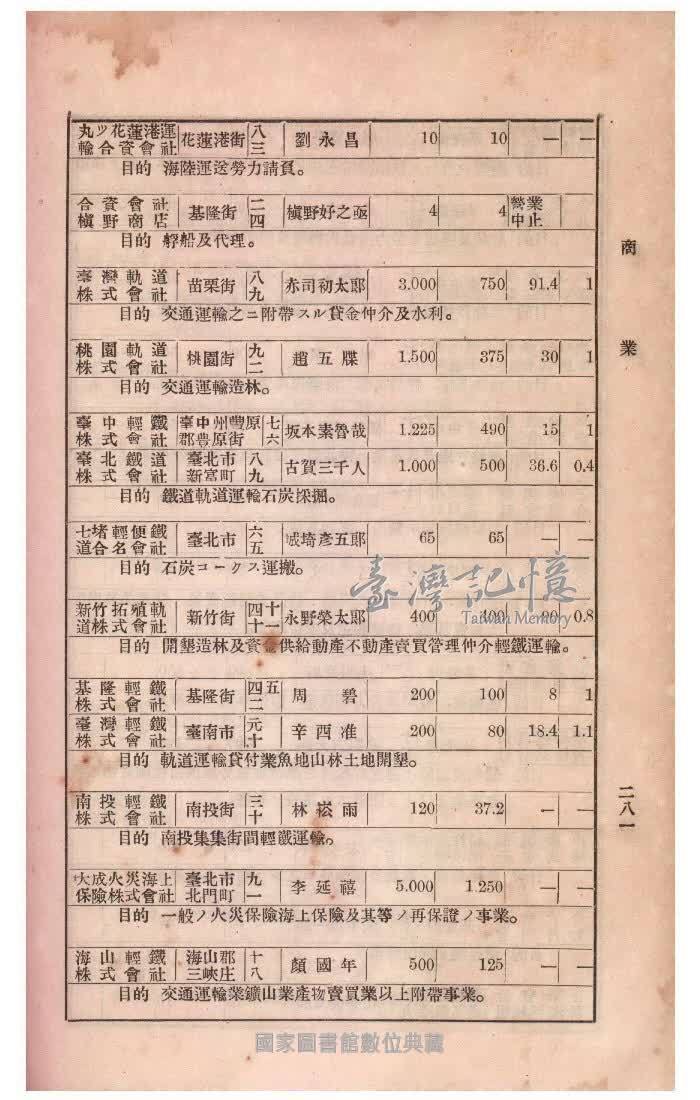 丸ツ花蓮港運輸合資會社 花蓮港街 八三 劉永昌 10 10 — —
目的 海陸運送勞力請負。
合資會社槇野商店 基隆街 二四 槇野好之亟 4 4 營業中止
目的 艀船及代理。
臺灣軌道株式會社 苗栗街 八九 赤司初太郎 3.000 750 91.4 1
目的 交通運輸之ニ附帶スル貸金仲介及水利。
桃園軌道株式會社 桃園街 九二 趙五牒 1.500 375 30 1
目的 交通運輸造林。
臺中輕鐵株式會社 臺中州豐原郡豊原街 七六 坂本素魯哉 1.225 490 15 1
臺北鐵道株式會社 臺北市新富町 八九 古賀三千人 1.000 500 36.6 0.4
目的 鐵道軌道運輸石炭採掘。
七堵輕便鐵道合名會社 臺北市 六五 城埼彥五郎 65 65 — —
目的 石炭コークス運搬。
新竹拓殖軌道株式會社 新竹街 四十十一 永野榮太郎 400 400 20 0.8
目的 開墾造林及資金供給動產不動產賣買管理仲介輕鐵運輸。
基隆輕鐵株式會社 基隆街 四五二 周碧 200 100 8 1
臺灣輕鐵株式會社 臺南市 元十 辛西淮 200 80 18.4 1.1
目的 軌道運輸貸付業魚地山林土地開墾。
南投輕鐵株式會社 南投街 三十 林崧雨 120 37.2 — —
目的 南投集集街間輕鐵運輸。
大成火災海上保險株式會社 臺北市北門町 九一 李延禧 5.000 1.250 — —
目的 一般ノ火災保險海上保險及其等ノ再保證ノ事業。
海山輕鐵株式會社 海山郡三峽庄 十八 顏國年 500 125 — —
目的 交通運輸業鑛山業產物賣買業以上附帶事業。
商業
二八一
臺灣記憶
Taiwan Memory
國家圖書館數位典藏